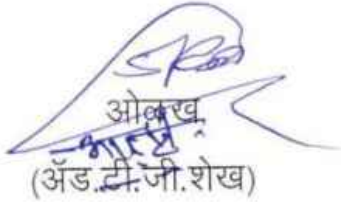 ओळख
(ॲड.टी.जी.शेख)